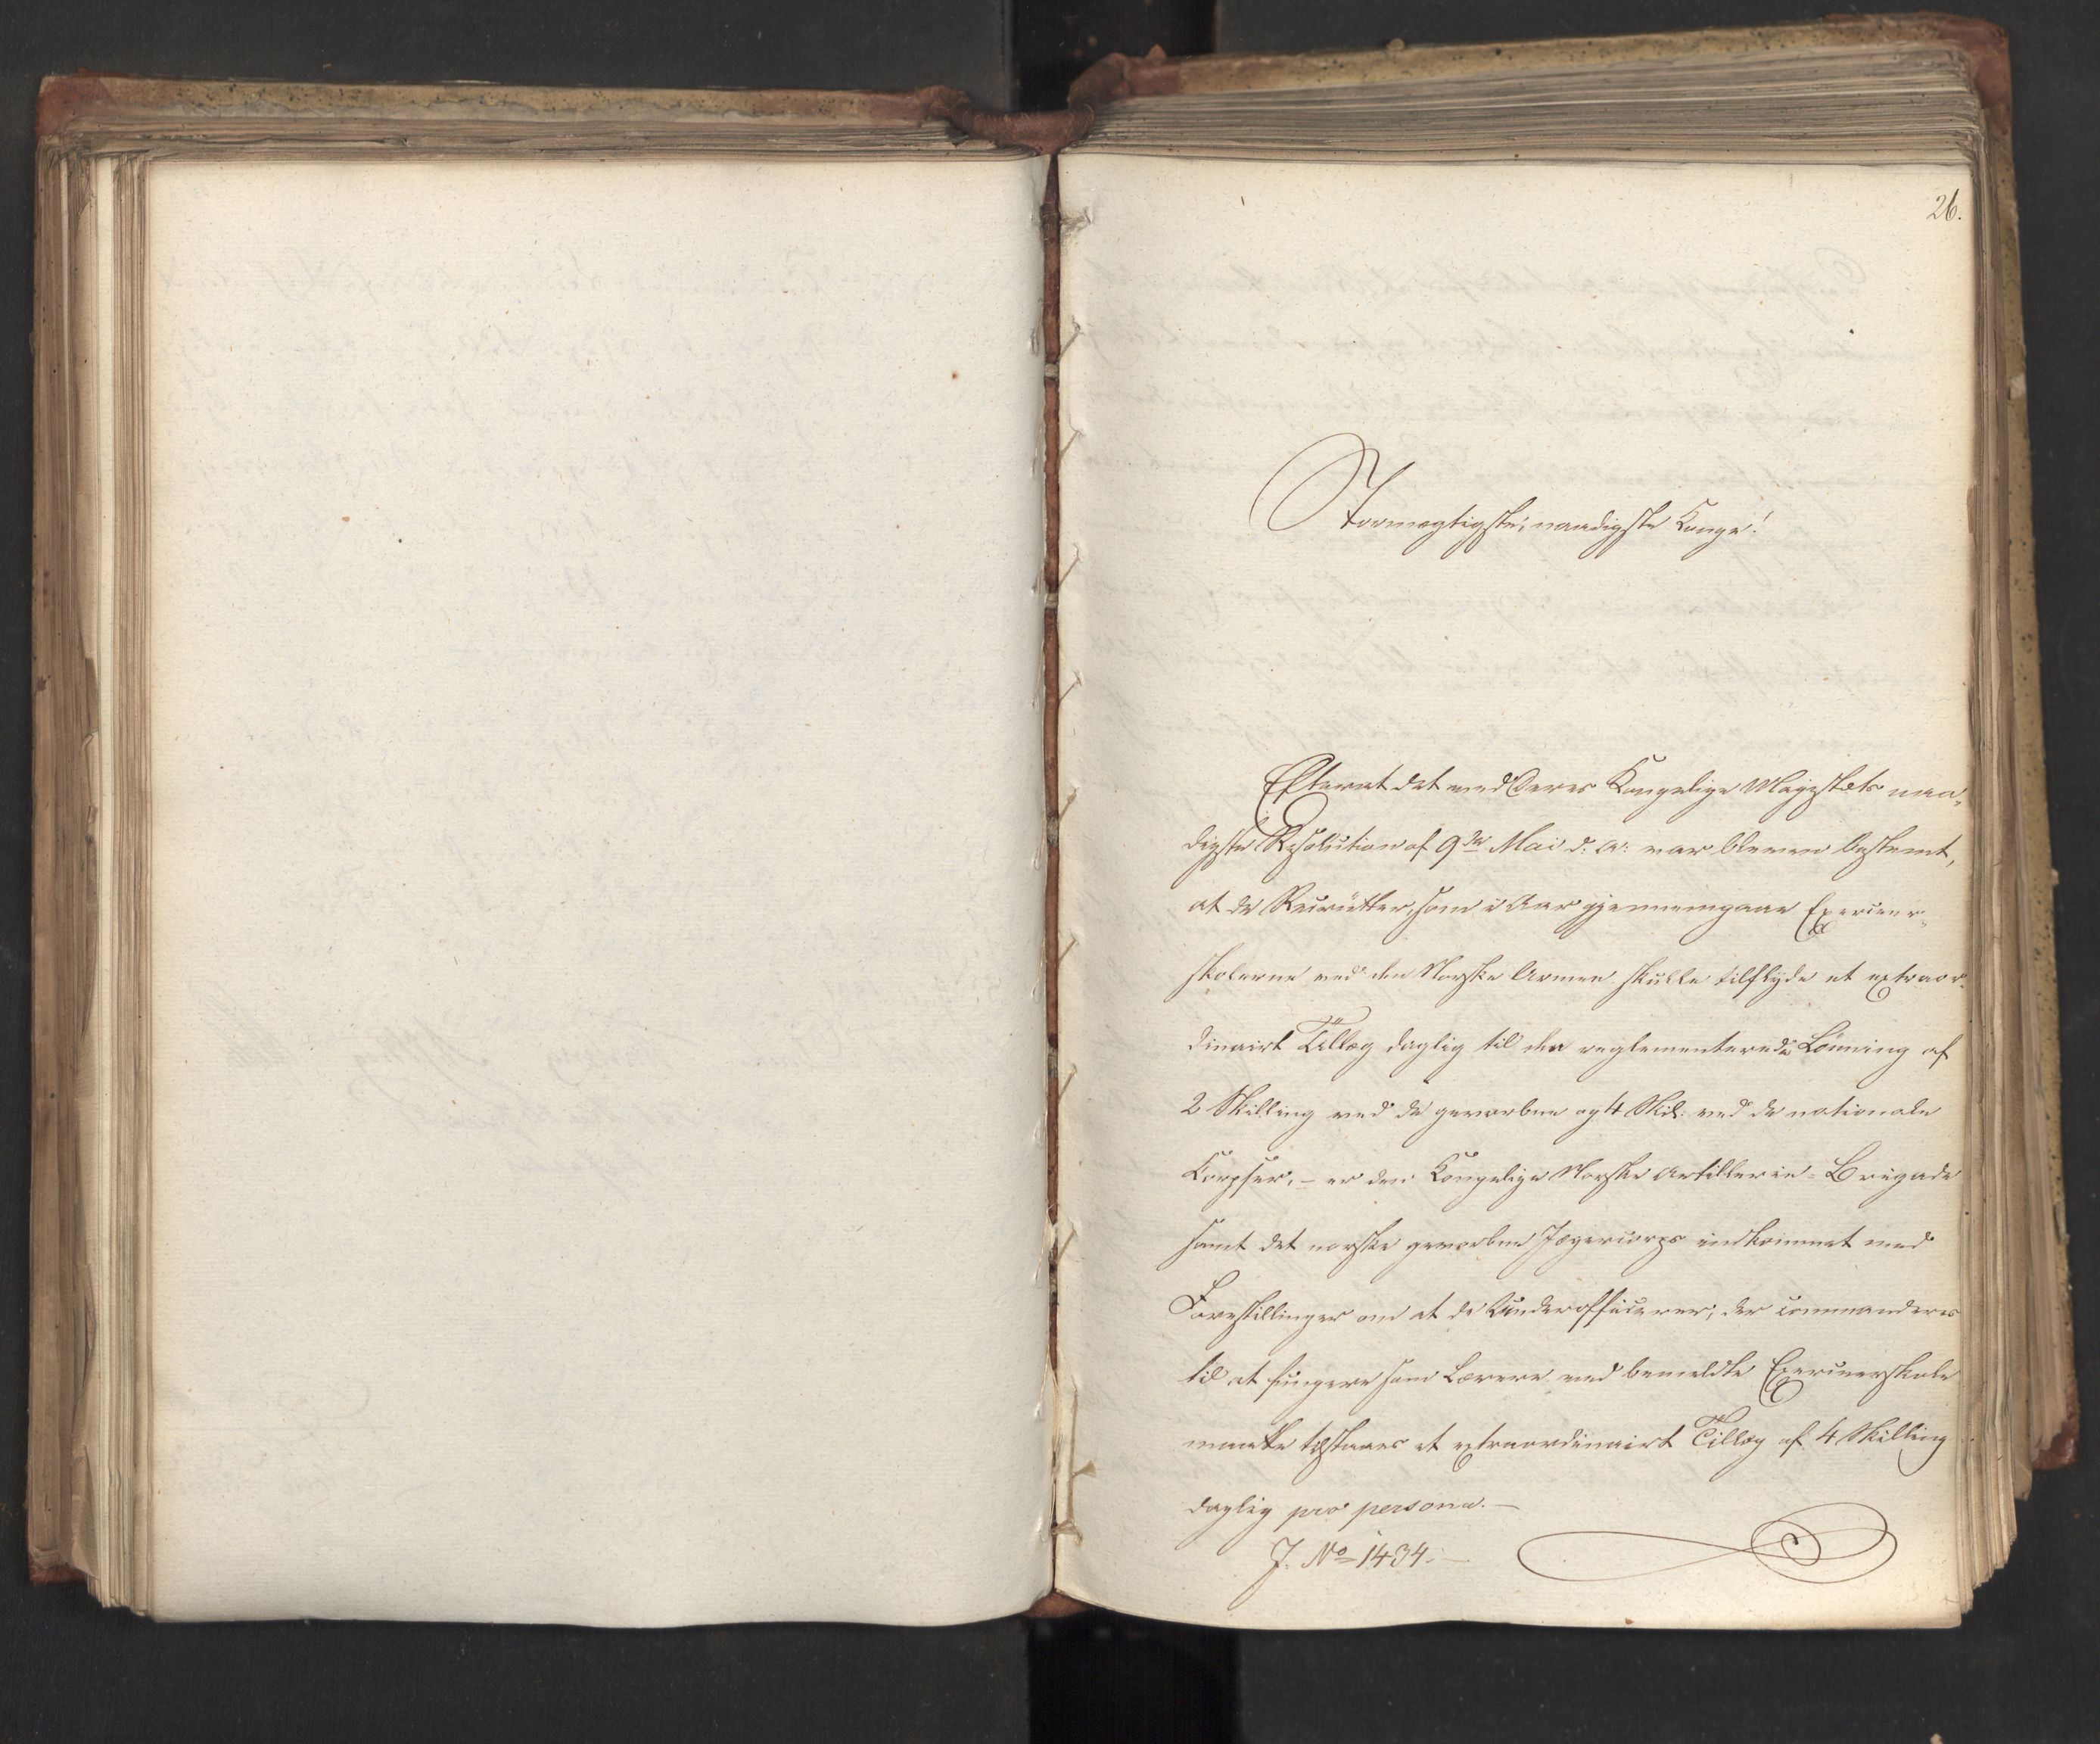 26.
Stormægtigste, naadigste Konge!
Efterat det med Deres Kongelige Majestæts naa-
digste Resolution af 9de Mai d. A: var bleven bestemt,
at de Recrutter, som i Aar gjennemgaae Exerceer-
skolerne ved den Norske Armee skulle tilflyde et extraor-
dinairt Tillæg daglig til den reglementerede Lønning af
2 Skilling ved de gevorbne og 4 Skil: ved de nationale
Corpser, – er den Kongelige Norske Artillerie-Brigade
samt det norske gevorbne Jægercorps indkommet med
Forestillinger om at de Underofficerer, der commanderes
til at fungere som Lærere ved bemeldte Exerceerskole
maatte tilstaaes et extraordinairt Tillæg af 4 Skilling
daglig pro persona. –
J. No 1434. –